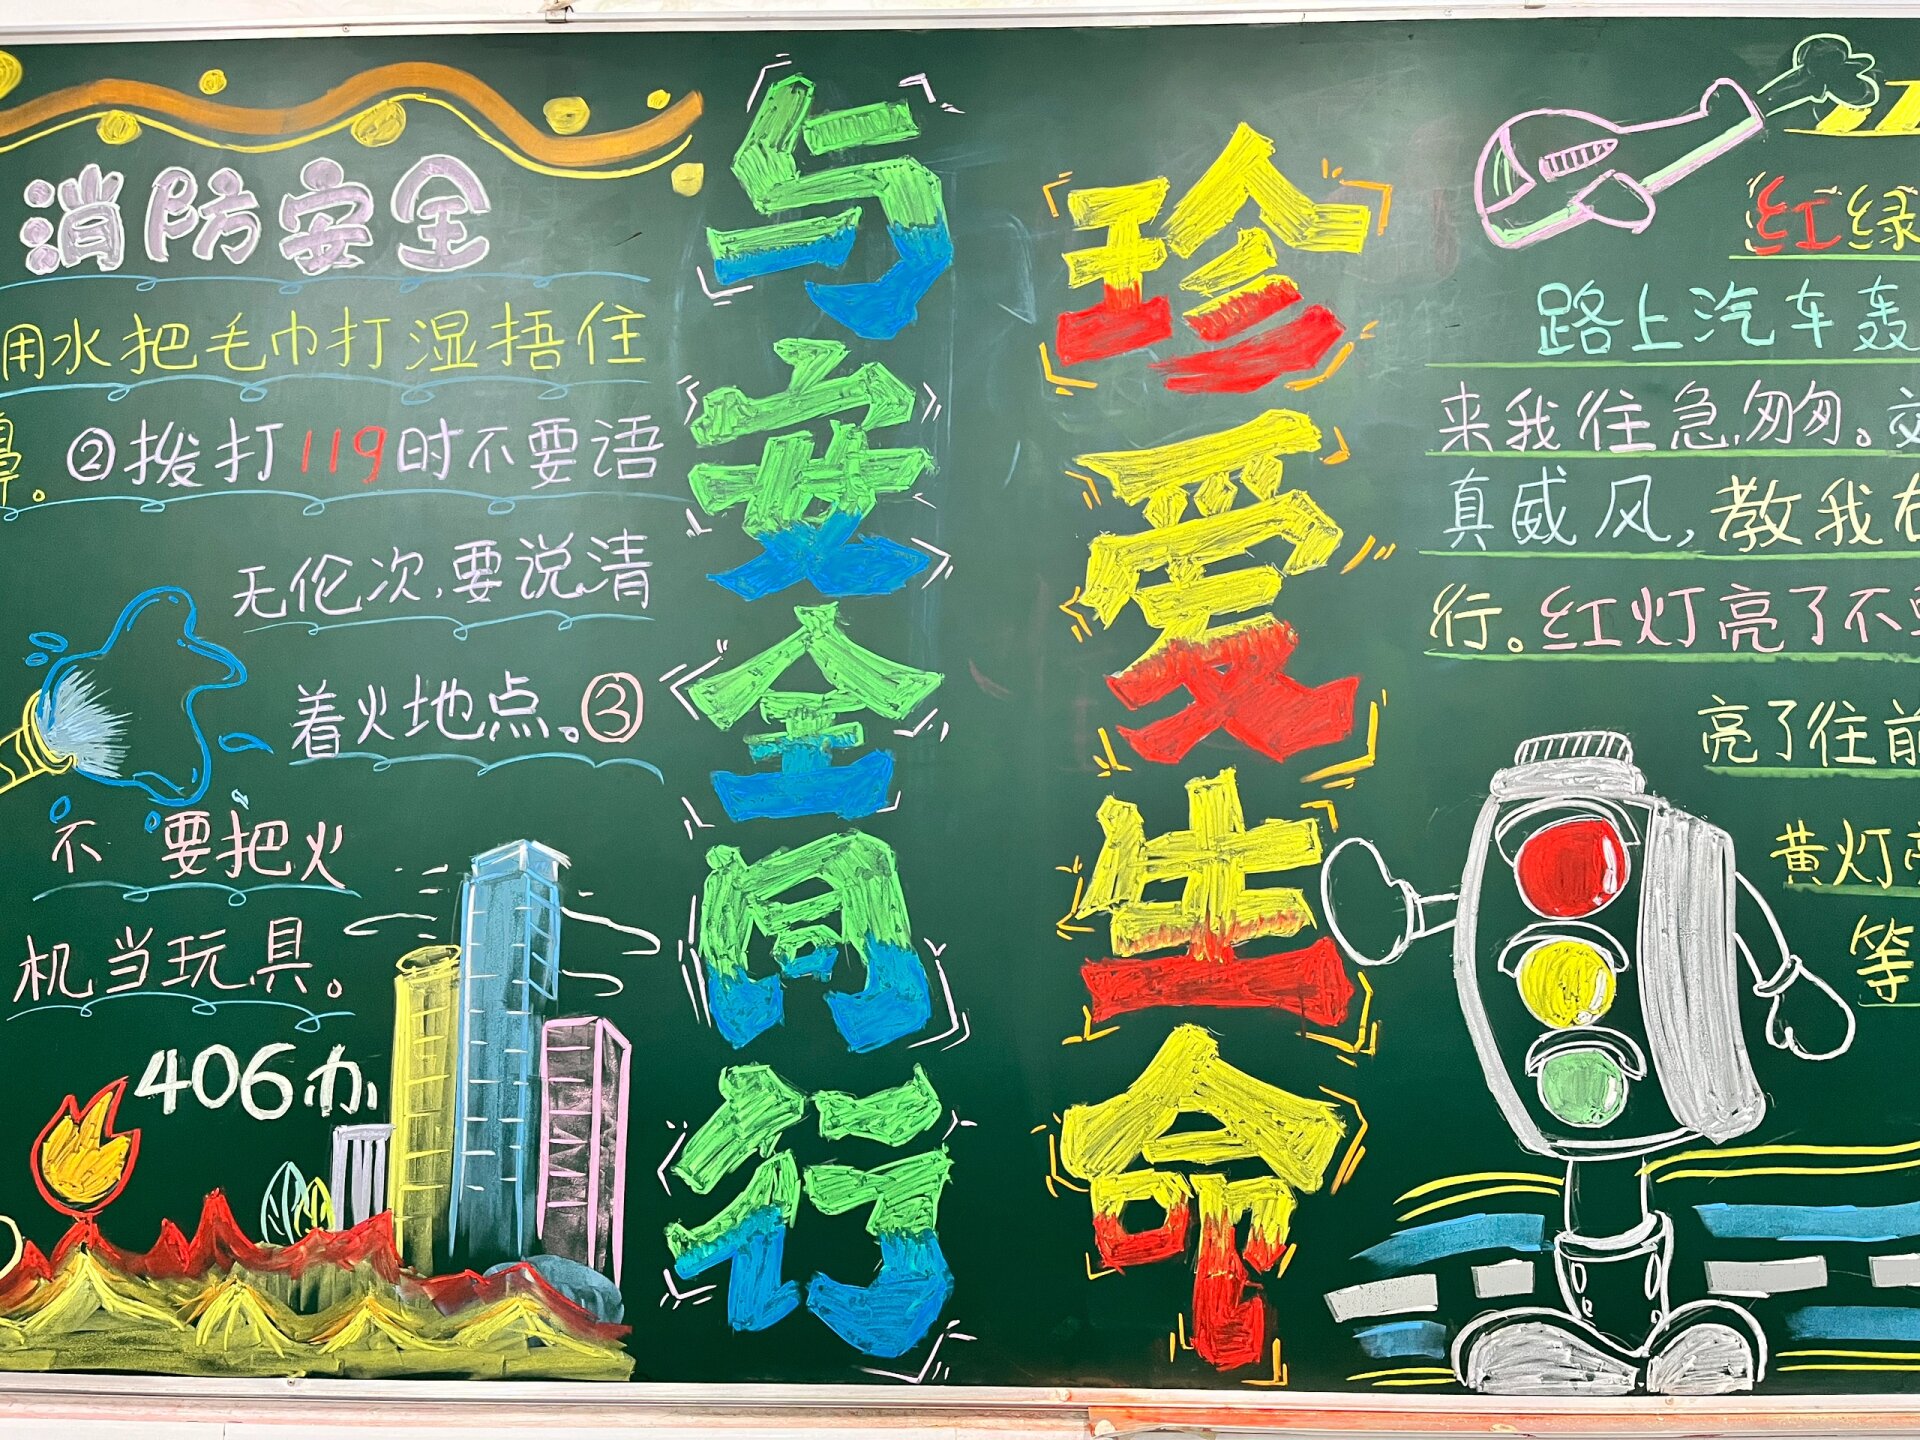 消防安全
用水把毛巾打湿捂住
鼻。②拨打119时不要语
无伦次,要说清
着火地点。③
不要把火
机当玩具。
406办
珍爱生命
与安全同行
红绿
路上汽车轰
来我往急匆匆。交
真威风,教我在
行。红灯亮了不要
亮了往前
黄灯亮
等